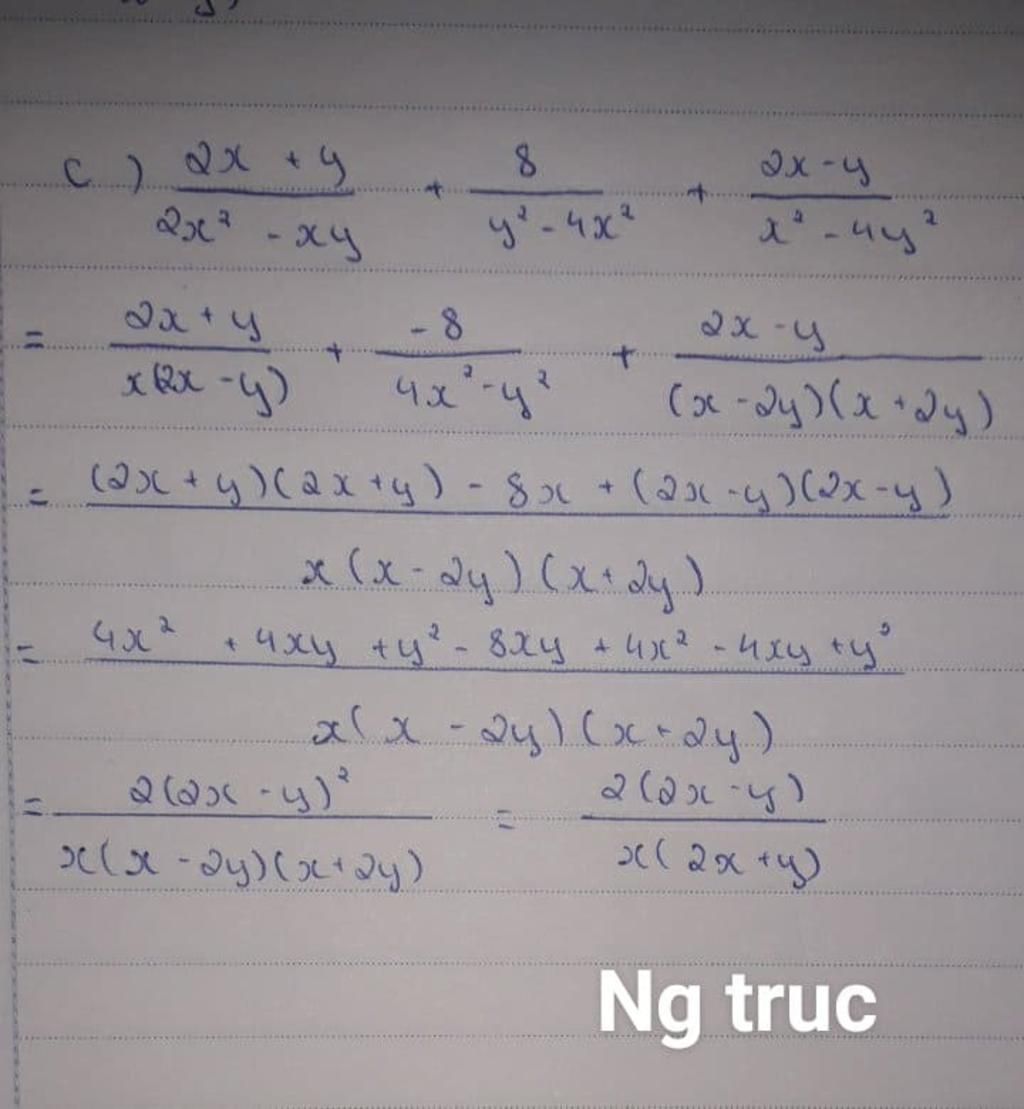 c) (2x + y)/(2x² - xy) + 8/(y² - 4x²) + (2x - y)/(x² - 4y²)
= (2x + y)/(x(2x - y)) + (-8)/(4x² - y²) + (2x - y)/((x - 2y)(x + 2y))
= ((2x + y)(2x + y) - 8x + (2x - y)(2x - y))/(x(x - 2y)(x + 2y))
= (4x² + 4xy + y² - 8xy + 4x² - 4xy + y²)/(x(x - 2y)(x + 2y))
= (2(2x - y)²)/(x(x - 2y)(x + 2y)) = (2(2x - y))/(x(2x + y))
Ng truc